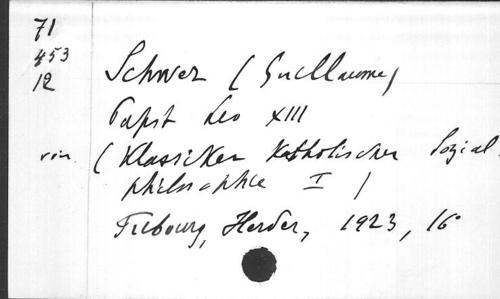 71
453
12
Schwer (Guillaume)
Papst Leo XIII
(Klassiker Katholischer Sozial-
philosophie I)
Fribourg, Herder, 1923, 16°